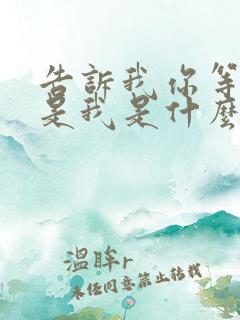 告訴我你等
是我是什麼
溫眸r
未经同意禁止转载